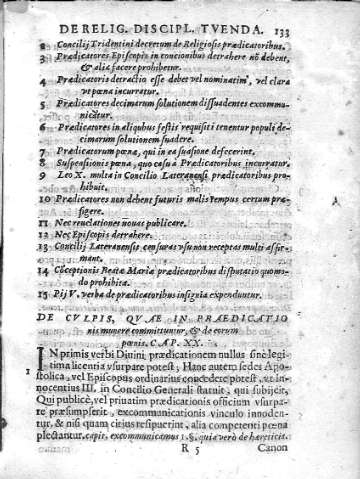 DE RELIG. DISCIPL. TVENDA. 133
2 Concilij Tridentini decretum de Religiosis prædicatoribus.
3 Prædicatores Episcopis in concionibus detrahere nō debent,
& alia facere prohibetur.
4 Prædicatoris detractio esse debet vel nominatim, vel clara
vt pœna incurratur.
5 Prædicatores decimarum solutionem dissuadentes excommu-
nicātur.
6 Prædicatores in aliqubus festis requisiti tenentur populi de-
cimarum solutionem suadere.
7 Prædicatorum pœna, qui in ea suasione defecerint.
8 Suspensionis pœna, quo casu à Prædicatoribus incurratur.
9 Leo X. multa in Concilio Lateranensi prædicatoribus pro-
hibuit.
10 Prædicatores non debent futuris malis tempus certum præ-
figere.
11 Nec reuelationes nouas publicare.
12 Nec Episcopis detrahere.
13 Concilij Lateranensis censuras vsu non receptas multi affir-
mant.
14 Cōceptionis Beatæ Mariæ prædicatoribus disputatio quomo-
do prohibita.
15 Pij V. verba de prædicatoribus insignia expenduntur.
DE CVLPIS, QVAE IN PRAEDICATIO
nis munere committuntur, & de eorum
pœnis. CAP. XX.
IN primis verbi Diuini, prædicationem nullus sine legi-
tima licentia vsurpare potest; Hanc autem sedes Apo-
1 stolica, vel Episcopus ordinarius concedere potest, vt In-
nocentius III. in Concilio Generali statuit, qui subijcit,
Qui publicè, vel priuatim prædicationis officium vsurpa-
re præsumpserit, excommunicationis vinculo innoden-
tur, & nisi quam citius resipuerint, alia competenti pœna
plectantur. capit. excommunicamus 1. §. quia verò de hæreticis.
R 5 Canon